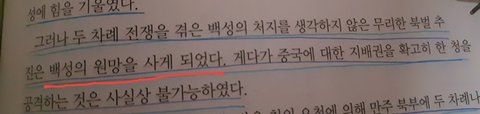 성에 힘을 기울였다.
그러나 두 차례 전쟁을 겪은 백성의 처지를 생각하지 않은 무리한 북벌 추
진은 백성의 원망을 사게 되었다. 게다가 중국에 대한 지배권을 확고히 한 청을
공격하는 것은 사실상 불가능하였다.
요청에 의해 만주 북부에 두 차례나